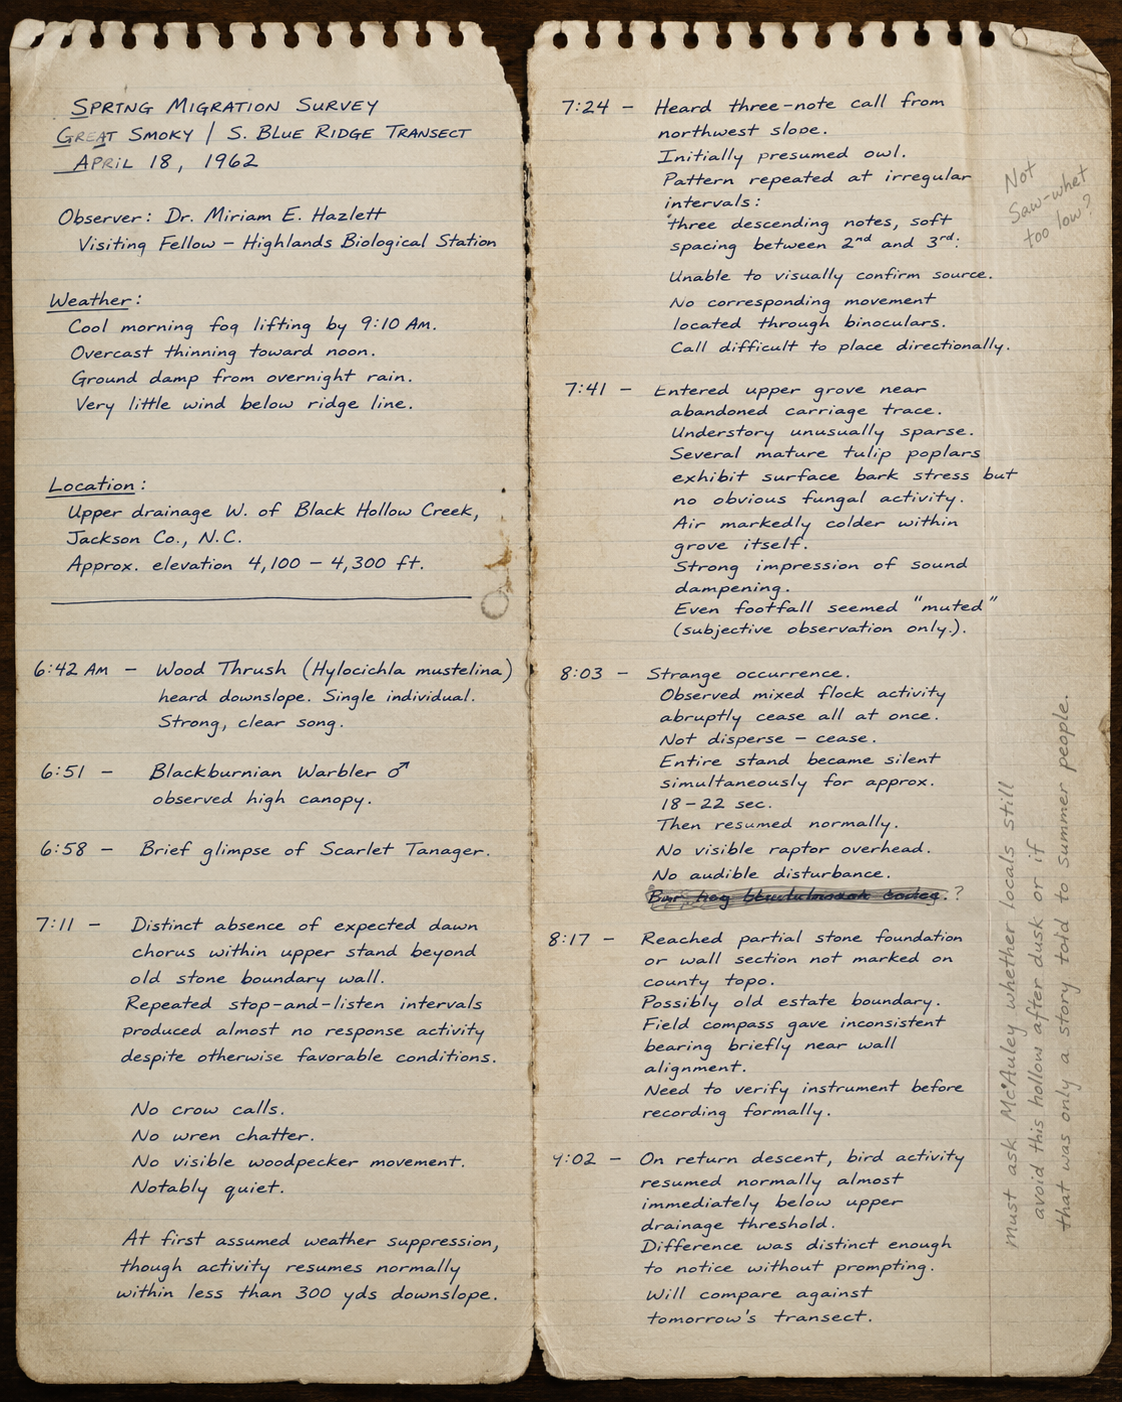 SPRING MIGRATION SURVEY
GREAT SMOKY / S. BLUE RIDGE TRANSECT
APRIL 18, 1962
Observer: Dr. Miriam E. Hazlett
Visiting Fellow – Highlands Biological Station
Weather:
Cool morning fog lifting by 9:10 AM.
Overcast thinning toward noon.
Ground damp from overnight rain.
Very little wind below ridge line.
Location:
Upper drainage W. of Black Hollow Creek,
Jackson Co., N.C.
Approx. elevation 4,100 – 4,300 ft.
6:42 AM – Wood Thrush (Hylocichla mustelina)
heard downslope. Single individual.
Strong, clear song.
6:51 – Blackburnian Warbler ♂
observed high canopy.
6:58 – Brief glimpse of Scarlet Tanager.
7:11 – Distinct absence of expected dawn
chorus within upper stand beyond
old stone boundary wall.
Repeated stop-and-listen intervals
produced almost no response activity
despite otherwise favorable conditions.
No crow calls.
No wren chatter.
No visible woodpecker movement.
Notably quiet.
At first assumed weather suppression,
though activity resumes normally
within less than 300 yds downslope.
7:24 – Heard three-note call from
northwest slope.
Initially presumed owl.
Pattern repeated at irregular
intervals:
three descending notes, soft
spacing between 2nd and 3rd:
Unable to visually confirm source.
No corresponding movement
located through binoculars.
Call difficult to place directionally.
Not
Saw-whet
too low?
7:41 – Entered upper grove near
abandoned carriage trace.
Understory unusually sparse.
Several mature tulip poplars
exhibit surface bark stress but
no obvious fungal activity.
Air markedly colder within
grove itself.
Strong impression of sound
dampening.
Even footfall seemed "muted"
(subjective observation only.).
8:03 – Strange occurrence.
Observed mixed flock activity
abruptly cease all at once.
Not disperse – cease.
Entire stand became silent
simultaneously for approx.
18–22 sec.
Then resumed normally.
No visible raptor overhead.
No audible disturbance.
?
8:17 – Reached partial stone foundation
or wall section not marked on
county topo.
Possibly old estate boundary.
Field compass gave inconsistent
bearing briefly near wall
alignment.
Need to verify instrument before
recording formally.
:02 – On return descent, bird activity
resumed normally almost
immediately below upper
drainage threshold.
Difference was distinct enough
to notice without prompting.
Will compare against
tomorrow's transect.
must ask McAuley whether locals still
avoid this hollow after dusk or if
that was only a story told to summer people.